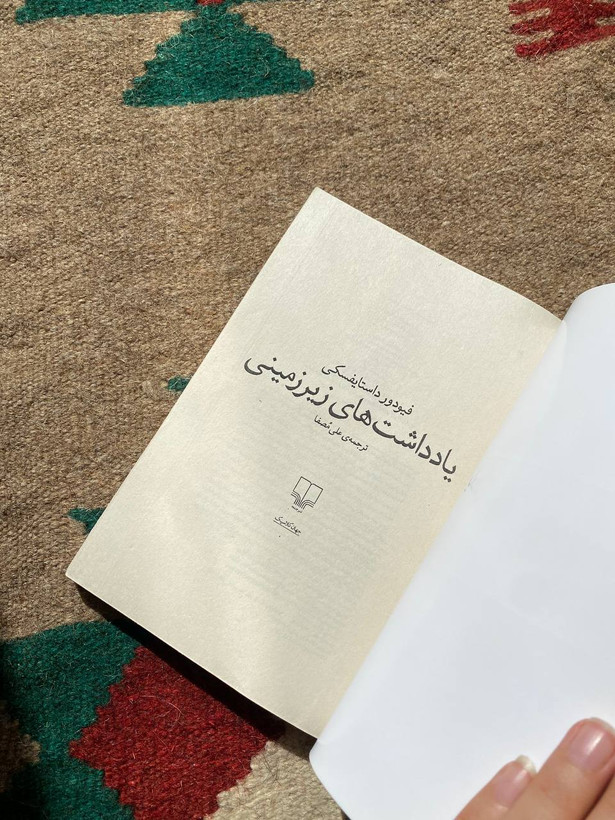 فیودور داستایفسکی
یادداشت‌های زیرزمینی
ترجمه‌ی علی مُصفا
نشرچشمه
جهان کلاسیک